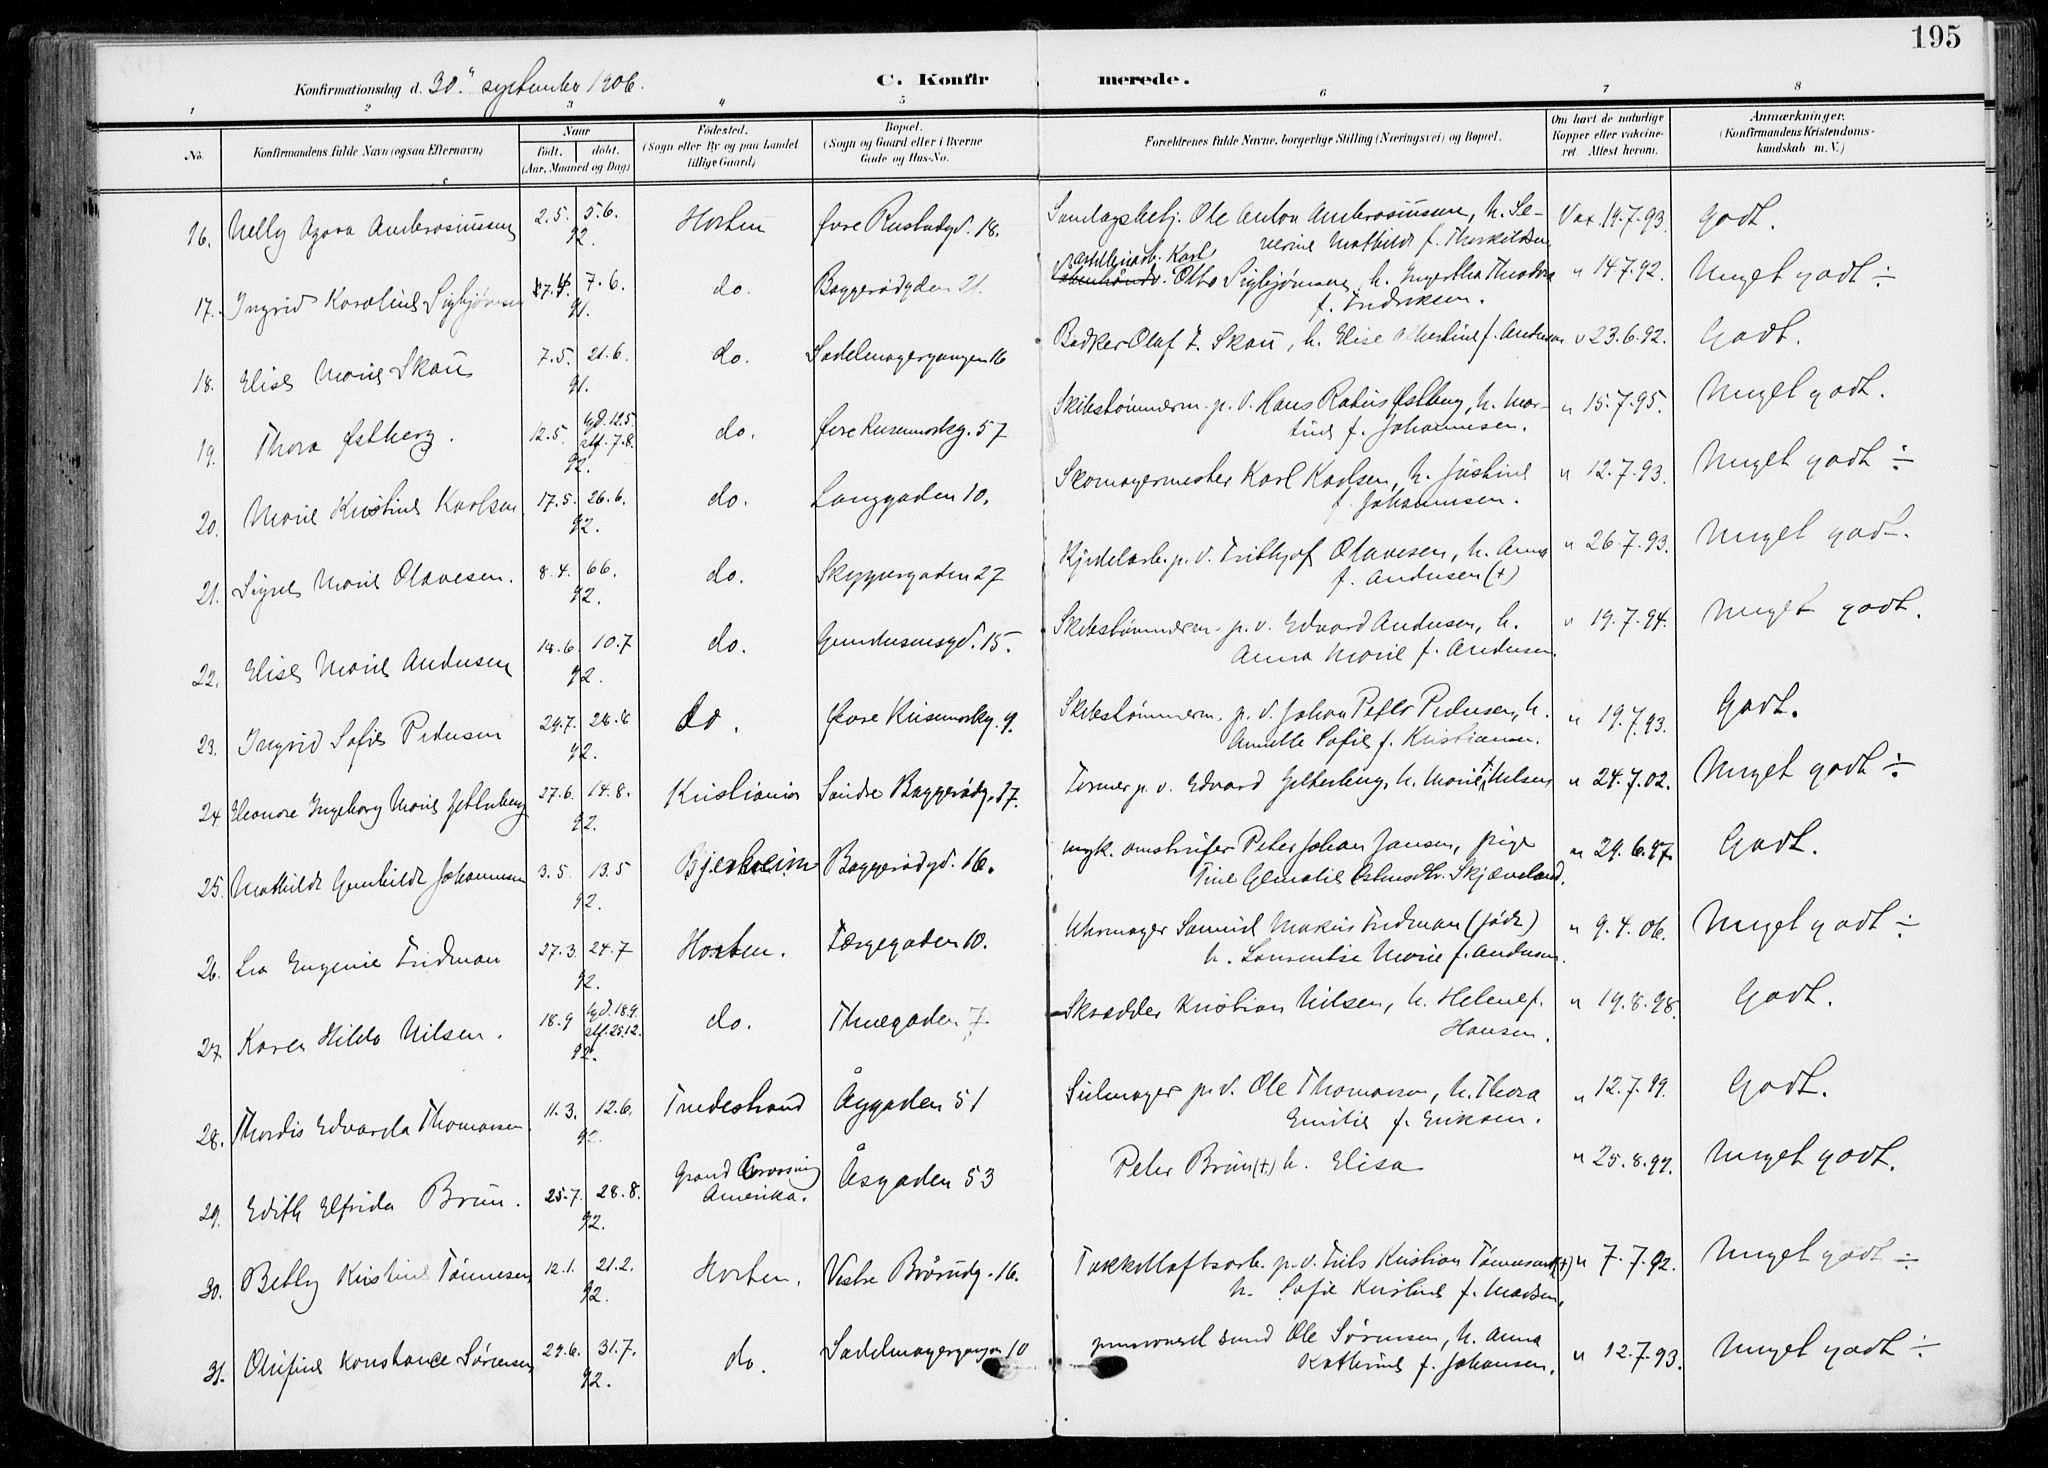 195
Konfirmationsdag d. 30. september 1906.
C. Konfirmerede.
1 2 3 4 5 6 7 8
No.
Konfirmandens fulde Navn (ogsaa Efternavn)
Naar
født. døbt.
(Aar, Maaned og Dag)
Fødested.
(Sogn eller By og paa Landet
tillige Gaard)
Bopæl.
(Sogn og Gaard eller i Byerne
Gade og Hus-No.
Forældrenes fulde Navne, borgerlige Stilling (Næringsvei) og Bopæl.
Om havt de naturlige
Kopper eller vakcine-
ret. Attest herom.
Anmærkninger.
(Konfirmandens Kristendoms-
kundskab m. V.)
16. Nelly Agora Ambrosiussen 2.5. 5.6. Horten Øvre Rustadgd. 18. Ole Anton Ambrosiussen, h. Se- Vax. 19.7.93. Godt.
92. verine Mathilde f. Thorkildsen
artilleriarb. Karl
17. Ingrid Karoline Sigbjørnsen 7.6. do. Baggerødgden 21. Otto Sigbjørnsen, h. Theodora " 14.7.92. Meget godt ÷
91. f. Fredriksen.
18. Elise Marie Skau 7.5. 21.6. do. Sadelmagergangen 16 Bødker Olaf T. Skau, h. Elise Albertine f. Andersen " 23.6.92. Godt.
91.
19. Thora Østberg. 12.5. hjd. 12.5. do. Øvre Keisemarkg. 57 Skibstømmerm. p. V. Hans Østberg, h. Mar- " 15.7.95. Meget godt.
stf. 7.8. tine f. Johannesen.
92.
20. Marie Kristine Karlsen 17.5. 26.6. do. Langgaden 10. Skomagermester Karl Karlsen, h. Justine " 12.7.93. Meget godt ÷
92. f. Johannesen.
21. Signe Marie Olavesen. 8.4. 6.6. do. Skippergaden 27 Kjedelarb. p. V. Frithjof Olavesen, h. Anna " 26.7.93. Meget godt.
92. f. Andersen (+)
22. Elise Marie Andersen 18.6. 10.7 do. Gundersensgd. 15. Skibstømmerm. p. v. Edvard Andersen, h. " 19.7.94. Meget godt.
92. Anna Marie f. Andersen.
23. Ingrid Sofie Pedersen 24.7. 28.8 do. Øvre Keisemarkg. 9. Skibstømmerm. p. V. Johan Peter Pedersen, h. " 19.7.93. Godt.
92. Annette Sofie f. Kristiansen.
24. Eleonore Ingeborg Marie Zetterberg 27.6. 14.8. Kristiania Søndre Baggerødg. 17. Former p. v. Edvard Zetterberg, h. Marie f. Nilsen " 24.7.02. Meget godt ÷
92.
25. Mathilde Gunhilde Johannesen 3.5. 13.5 Bjerkreim Baggerødgd. 16. Peter Johan Jansen, pige " 29.6.97. Godt.
92. Tine Skjæveland.
26. Lea Eugenie Fridman 27.3. 24.7 Horten. Færgegaden 10. Uhrmager Samuel Makus Fridman (jøde) " 9.4.06. Meget godt ÷
92. h. Laurentse Marie f. Andersen.
27. Karen Hilda Nilsen. 18.9 hjd. 18.9. do. Thuegaden 7. Skrædder Kristian Nilsen, h. Helene f. " 19.8.98. Godt.
stf. 25.12. Hansen.
92.
28. Thordis Edvarda Thomassen 11.3. 12.6. Tvedestrand Åsgaden 51 Seilmager p. V. Ole Thomassen, h. Thora " 12.7.99. Godt.
92. Emilie f. Eriksen.
29. Edith Elfrida Bruun. 25.7. 28.8. Grand Crossing Åsgaden 53 Peter Bruun (+) h. Elisa " 25.8.97. Meget godt.
92. Amerika.
30. Betty Kristine Tønnesen 12.1. 21.2. Horten. Vestre Brårudg. 16. Takkelloftsarb. p. V. Kristian Tønnesen (+) " 7.7.92. Meget godt ÷
92. h. Sofie Kristine f. Madsen.
31. Olufine Konstance Sørensen 29.6. 31.7. do. Sadelmagergangen 10 pensioneret smed Ole Sørensen, h. Anna " 12.7.93. Meget godt ÷
92. Kathrine f. Johansen.